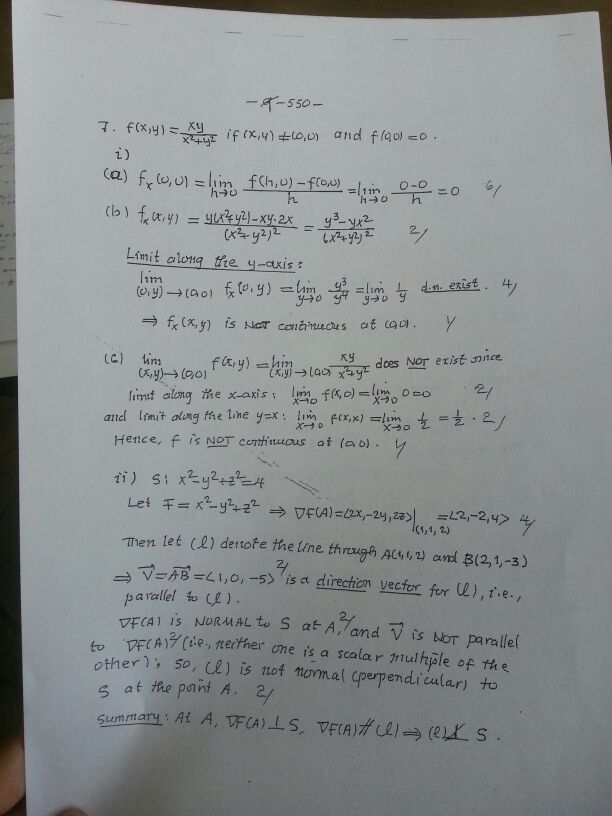 -9-550-
7. f(x,y) = xy/(x²+y²) if (x,y) ≠ (0,0) and f(0,0) = 0.
i)
(a) fx(0,0) = lim h→0 (f(h,0) - f(0,0))/h = lim h→0 (0-0)/h = 0 6/
(b) fx(x,y) = (y(x²+y²) - xy·2x)/(x²+y²)² = (y³ - yx²)/(x²+y²)² 2/
Limit along the y-axis:
lim (0,y)→(0,0) fx(0,y) = lim y→0 y³/y⁴ = lim y→0 1/y d.n. exist. 4/
⇒ fx(x,y) is NOT continuous at (0,0). 1/
(c) lim (x,y)→(0,0) f(x,y) = lim (x,y)→(0,0) xy/(x²+y²) does NOT exist since
limit along the x-axis: lim x→0 f(x,0) = lim x→0 0 = 0 2/
and limit along the line y=x: lim x→0 f(x,x) = lim x→0 1/2 = 1/2. 2/
Hence, f is NOT continuous at (0,0). 1/
ii) S: x²-y²+z²=4
Let F = x²-y²+z² ⇒ ∇F(A) = <2x,-2y,2z>|(1,1,2) = <2,-2,4> 4/
Then let (l) denote the line through A(1,1,2) and B(2,1,-3)
⇒ V⃗ = AB⃗ = <1,0,-5> 2/ is a direction vector for (l), i.e.,
parallel to (l).
∇F(A) is NORMAL to S at A, 2/ and V⃗ is NOT parallel
to ∇F(A) 2/ (i.e., neither one is a scalar multiple of the
other); so, (l) is not normal (perpendicular) to
S at the point A. 2/
Summary: At A, ∇F(A) ⊥ S, ∇F(A) ∦ (l) ⇒ (l) ⊥̸ S.